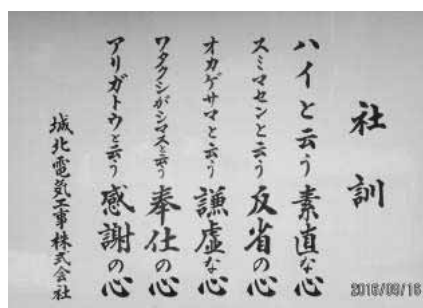 社訓
ハイと云う素直な心
スミマセンと云う反省の心
オカゲサマと云う謙虚な心
ワタクシがシマスと云う奉仕の心
アリガトウと云う感謝の心
城北電気工事株式会社
2016/09/16